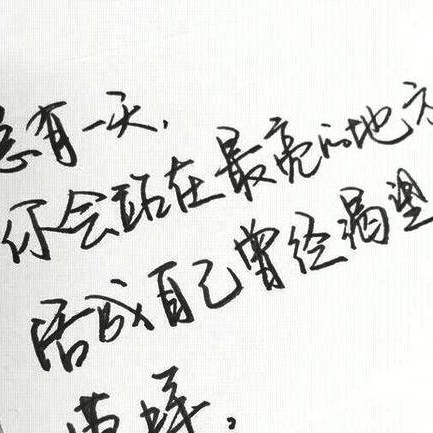 总有一天，
你会站在最亮的地方
活成自己曾经渴望